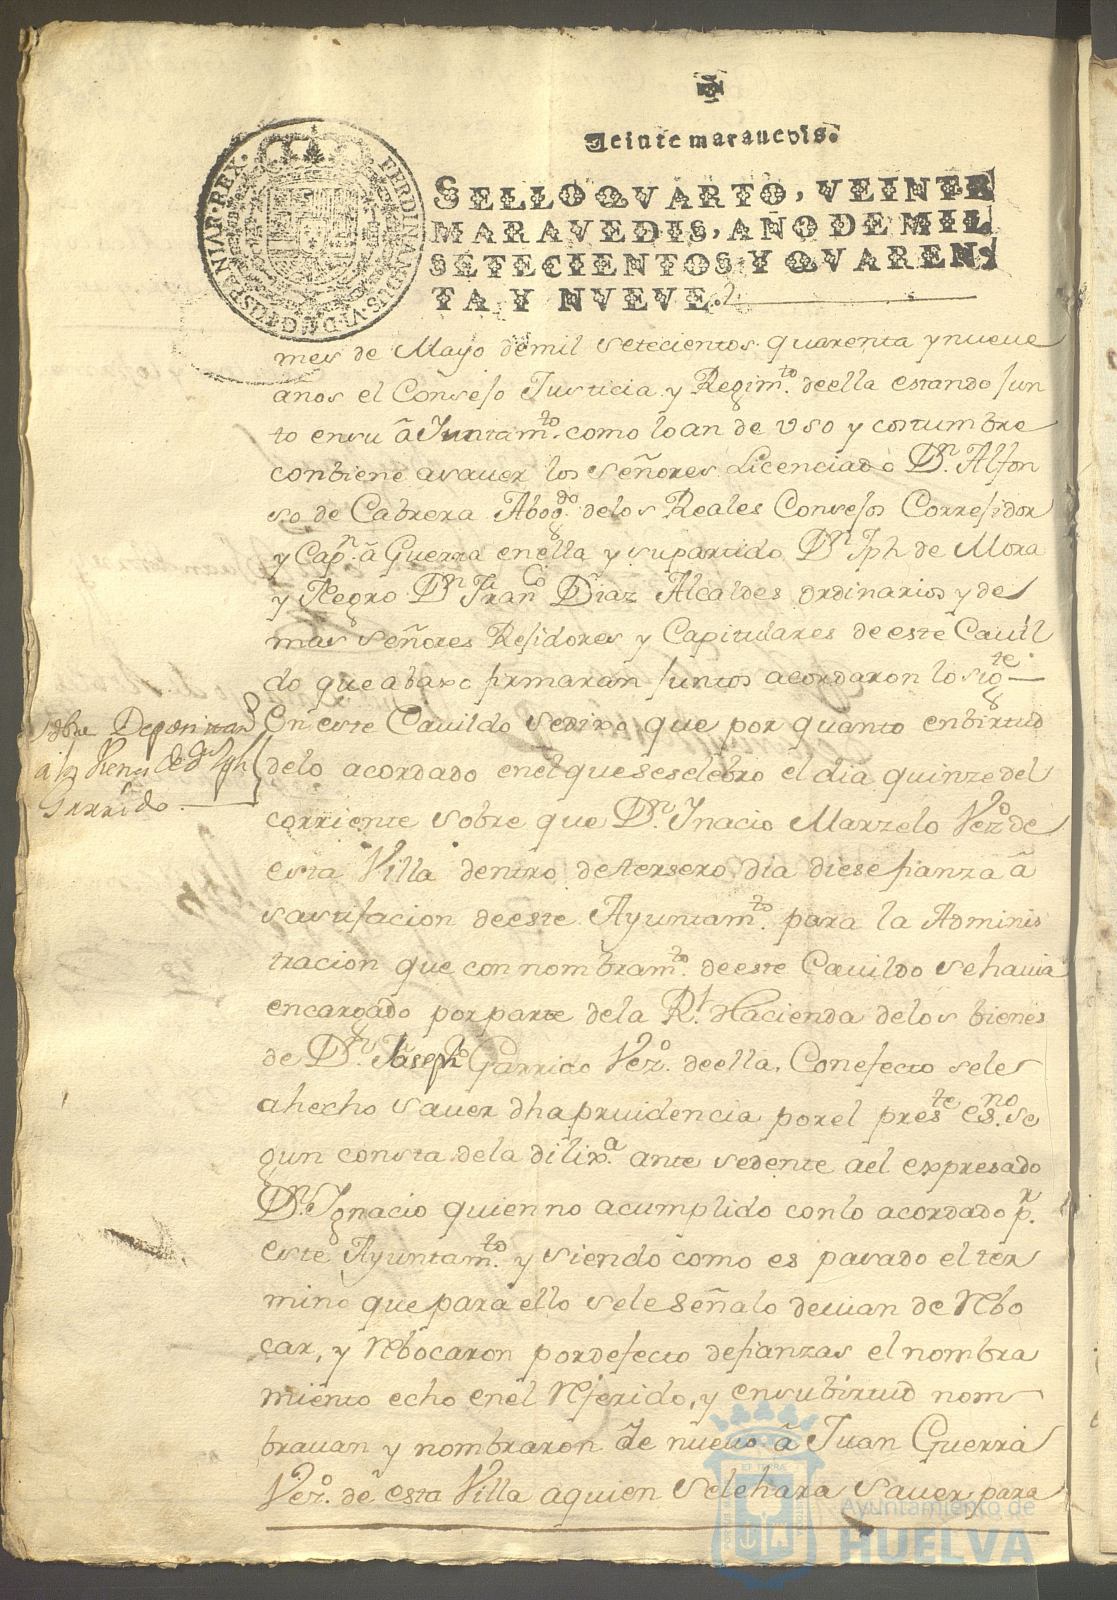 Veinte maravedis.
SELLO QVARTO, VEINTE
MARAVEDIS, AÑO DE MIL
SETECIENTOS Y QVAREN-
TA Y NVEVE.
FERDINANDUS VI D G HISPANIAR REX
mes de Mayo demil setecientos quarenta y nueve
años el Consejo Justicia y Regimto. deella estando jun
to ensu âJuntamto. como loan de uso y costumbre
conbiene asaver los señores Licenciado Dn. Alfon
so de Cabrera Abogdo. delos Reales Consejos Corregidor
y Capn. â Guerra enella y supartido Dn. Jph de Mora
y Negro Dn. Franco Diaz Alcaldes ordinarios y de
mas señores Regidores y Capitulares de este Cavil
do que abaxo firmaran juntos acordaron lo sigte.
Sobre Depositario
a los vienes de Dn Jph
Garrido
En este Cavildo sedixo que por quanto enbirtud
delo acordado enel queseselebro el dia quinze del
corriente sobre que Dn. Inacio Marzelo Vezo. de
esta Villa dentro detersero dia diese fianza â
satisfacion deeste Ayuntamto. para la Adminis
tracion que con nombramto. de este Cavildo se havia
encargado por parte dela Rl. Hacienda delos bienes
de Dn. Joseph Garrido Vezo. deella. Conefecto sele
ahecho saver dha pruidencia porel preste. esno. se
gun consta dela dilixa. ante sedente ael expresado
Dn. Ignacio quien no acumplido conlo acordado pr.
este Ayuntamto. y siendo como es pasado el ter
mino que para ello sele señalo devian de Rbo
car, y Rbocaron pordefecto defianzas el nombra
miento echo enel Rferido, y ensubirtud nom
bravan y nombraron de nuevo â Juan Guerra
Vezo. de esta Villa aquien sele hara saver para
Ayuntamiento de
HUELVA